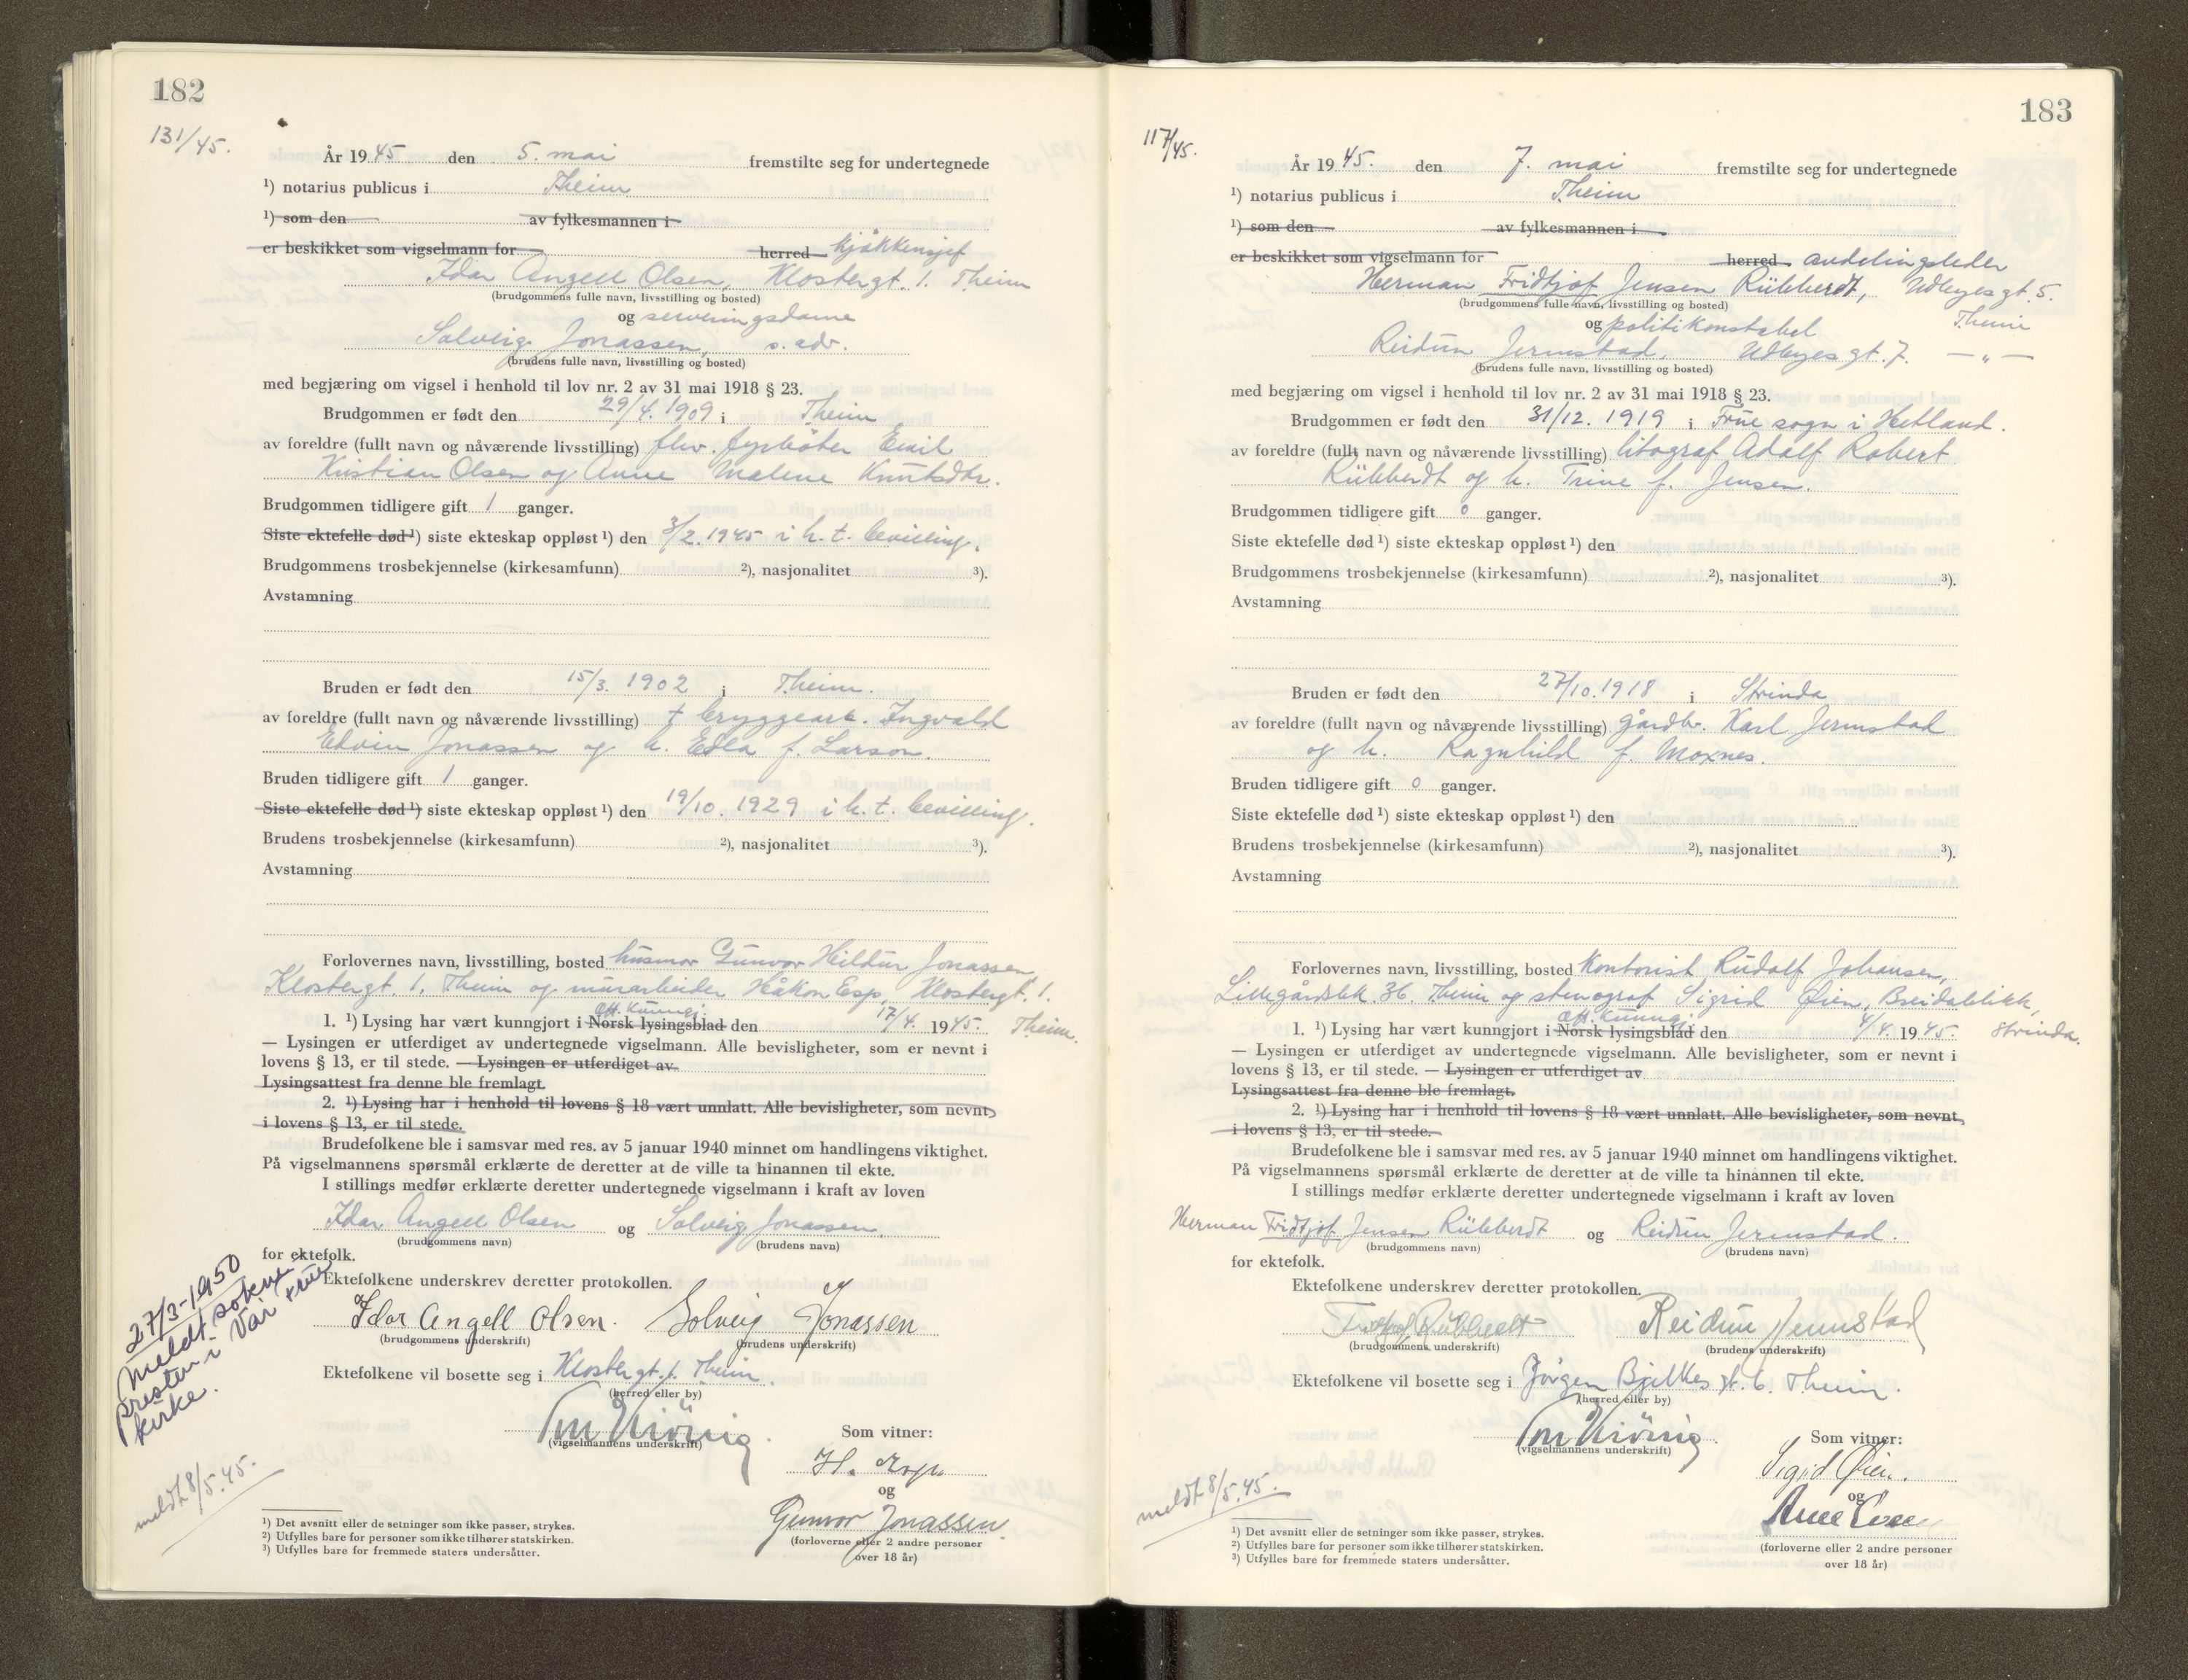 182
131/45.
År 1945 den 5. mai fremstilte seg for undertegnede
¹) notarius publicus i Theim
¹) som den av fylkesmannen i
er beskikket som vigselmann for herred kjøkkensjef
Idar Angell Olsen, Klostergt. 1. Theim
(brudgommens fulle navn, livsstilling og bosted)
og serveringsdame
Solveig Jonassen, s. adr.
(brudens fulle navn, livsstilling og bosted)
med begjæring om vigsel i henhold til lov nr. 2 av 31 mai 1918 § 23.
Brudgommen er født den 29/4. 1909 i Theim
av foreldre (fullt navn og nåværende livsstilling) fhv. fyrbøter Emil
Kristian Olsen og Anne Malene Knutsdtr.
Brudgommen tidligere gift 1 ganger.
Siste ektefelle død ¹) siste ekteskap oppløst ¹) den 3/2. 1945 i h. t. bevilling.
Brudgommens trosbekjennelse (kirkesamfunn) ²), nasjonalitet ³).
Avstamning
Bruden er født den 15/3. 1902 i Theim.
av foreldre (fullt navn og nåværende livsstilling) † bryggearb. Ingvald
Edvin Jonassen og h. Edla f. Larson.
Bruden tidligere gift 1 ganger.
Siste ektefelle død ¹) siste ekteskap oppløst ¹) den 19/10. 1929 i h. t. bevilling.
Brudens trosbekjennelse (kirkesamfunn) ²), nasjonalitet ³).
Avstamning
Forlovernes navn, livsstilling, bosted husmor Gunvor Hildur Jonassen
Klostergt. 1. Theim og murarbeider Håkon Esp, Klostergt. 1.
Off. Kunngj.
1. ¹) Lysing har vært kunngjort i Norsk lysingsblad den 17/4. 1945. Theim.
— Lysingen er utferdiget av undertegnede vigselmann. Alle bevisligheter, som er nevnt i
lovens § 13, er til stede. — Lysingen er utferdiget av
Lysingsattest fra denne ble fremlagt.
2. ¹) Lysing har i henhold til lovens § 18 vært unnlatt. Alle bevisligheter, som nevnt
i lovens § 13, er til stede.
Brudefolkene ble i samsvar med res. av 5 januar 1940 minnet om handlingens viktighet.
På vigselmannens spørsmål erklærte de deretter at de ville ta hinannen til ekte.
I stillings medfør erklærte deretter undertegnede vigselmann i kraft av loven
Idar Angell Olsen og Solveig Jonassen.
(brudgommens navn) (brudens navn)
for ektefolk.
Ektefolkene underskrev deretter protokollen.
Idar Angell Olsen. Solveig Jonassen
(brudgommens underskrift) (brudens underskrift)
Ektefolkene vil bosette seg i Klostergt. 1. Theim.
(herred eller by)
(vigselmannens underskrift)
Som vitner:
H. Esp
og
Gunvor Jonassen.
(forloverne eller 2 andre personer
over 18 år)
27/3-1950
Meldt sokne-
presten i Vår Frue
kirke.
meldt 8/5. 45.
¹) Det avsnitt eller de setninger som ikke passer, strykes.
²) Utfylles bare for personer som ikke tilhører statskirken.
³) Utfylles bare for fremmede staters undersåtter.
183
117/45.
År 1945. den 7. mai fremstilte seg for undertegnede
¹) notarius publicus i Theim
¹) som den av fylkesmannen i
er beskikket som vigselmann for herred avdelingsleder
Herman Fridtjof Jensen Rübberdt, Udbyesgt. 5.
(brudgommens fulle navn, livsstilling og bosted)
og politikonstabel Theim
Reidun Jermstad, Udbyesgt. 7. — „ —
(brudens fulle navn, livsstilling og bosted)
med begjæring om vigsel i henhold til lov nr. 2 av 31 mai 1918 § 23.
Brudgommen er født den 31/12. 1919 i Frue sogn i Hetland.
av foreldre (fullt navn og nåværende livsstilling) litograf Adolf Robert
Rübberdt og h. Trine f. Jensen.
Brudgommen tidligere gift 0 ganger.
Siste ektefelle død ¹) siste ekteskap oppløst ¹) den
Brudgommens trosbekjennelse (kirkesamfunn) ²), nasjonalitet ³).
Avstamning
Bruden er født den 27/10. 1918 i Strinda
av foreldre (fullt navn og nåværende livsstilling) gårdbr. Karl Jermstad
og h. Ragnhild f. Moxnes.
Bruden tidligere gift 0 ganger.
Siste ektefelle død ¹) siste ekteskap oppløst ¹) den
Brudens trosbekjennelse (kirkesamfunn) ²), nasjonalitet ³).
Avstamning
Forlovernes navn, livsstilling, bosted Kontorist Rudolf Johansen,
Lillegårdsbk. 36. Theim og stenograf Sigrid Øien, Breidablikk,
Off. Kunngj.
1. ¹) Lysing har vært kunngjort i Norsk lysingsblad den 4/4. 1945. Strinda.
— Lysingen er utferdiget av undertegnede vigselmann. Alle bevisligheter, som er nevnt i
lovens § 13, er til stede. — Lysingen er utferdiget av
Lysingsattest fra denne ble fremlagt.
2. ¹) Lysing har i henhold til lovens § 18 vært unnlatt. Alle bevisligheter, som nevnt
i lovens § 13, er til stede.
Brudefolkene ble i samsvar med res. av 5 januar 1940 minnet om handlingens viktighet.
På vigselmannens spørsmål erklærte de deretter at de ville ta hinannen til ekte.
I stillings medfør erklærte deretter undertegnede vigselmann i kraft av loven
Herman Fridtjof Jensen Rübberdt og Reidun Jermstad.
(brudgommens navn) (brudens navn)
for ektefolk.
Ektefolkene underskrev deretter protokollen.
Fridtjof Rübberdt Reidun Jermstad
(brudgommens underskrift) (brudens underskrift)
Ektefolkene vil bosette seg i Jørgen Bjelkes gt. 6. Theim.
(herred eller by)
(vigselmannens underskrift)
Som vitner:
Sigrid Øien.
og
(forloverne eller 2 andre personer
over 18 år)
meldt 8/5. 45.
¹) Det avsnitt eller de setninger som ikke passer, strykes.
²) Utfylles bare for personer som ikke tilhører statskirken.
³) Utfylles bare for fremmede staters undersåtter.